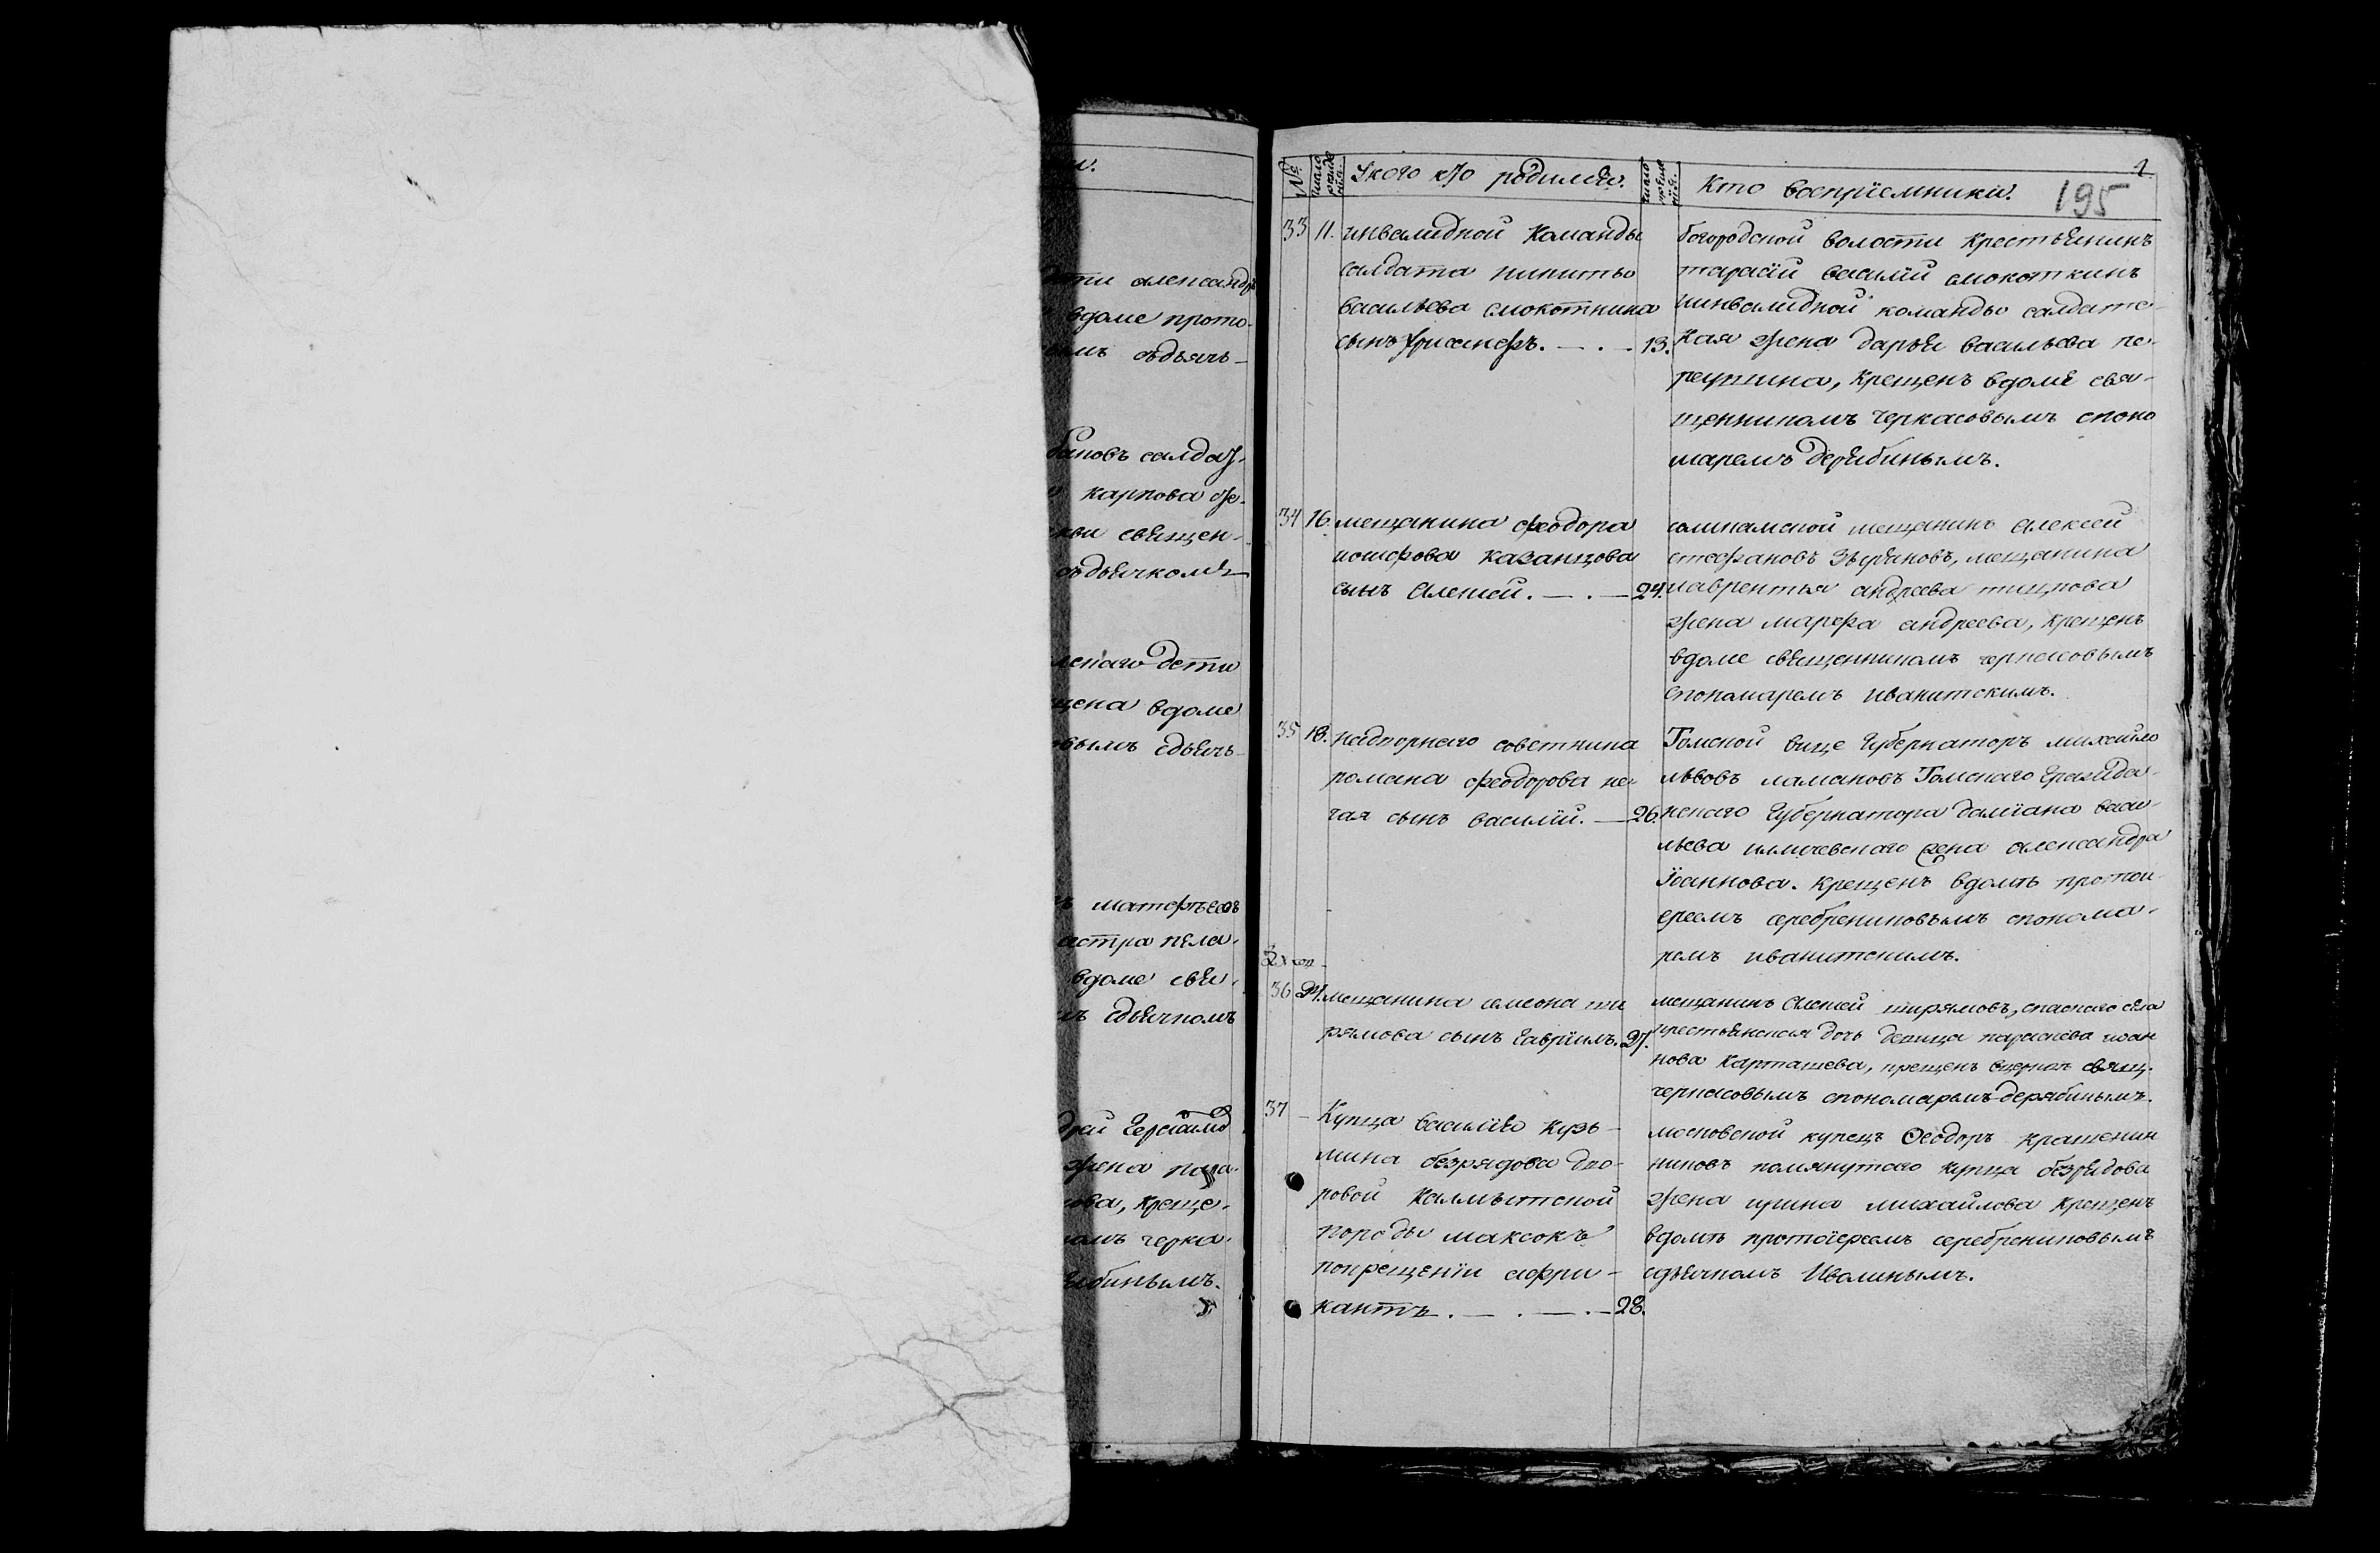 и.
ти александръ
вдоме прото-
ымъ сдьячь-
бановъ салдат-
карпова же-
кви священ-
сдьячкомъ
ленаго дети
щена вдоме
овымъ сдьячь-
ъ матфѣевъ
астра пела-
вдоме свя-
мъ сдьячкомъ
жена пара-
ова, креще-
омъ черка-
рябинымъ.
№ число рожде нія. У кого кто родился. число креще нія. Кто воспріемники. 195
33 11. инвалидной команды
салдата никиты
васильева смокотнина
сынъ 13.
богородской волости крестьянинъ
тарасій василій смокоткинъ
инвалидной команды салдатс-
кая жена дарья васильева пе-
, крещенъ вдоме свя-
щенникомъ черкасовымъ споно
маремъ дерябинымъ.
34 16. мещанина феодора
иосифова казанцова
сынъ алексей. — . — 24.
мещанинъ алексей
стефановъ зырановъ, мещанина
лаврентья андреева
жена марфа андреева, крещенъ
вдоме священникомъ черкасовымъ
спономаремъ иванитскимъ.
35 18. надворнаго советника
романа феодорова не-
чая сынъ василій. — 26.
Томской вице Губернаторъ михайло
львовъ мамановъ Томскаго гражда-
нскаго Губернатора даміана васи-
льева илличевскаго жена александра
іоаннова. крещенъ вдомѣ протои-
ереемъ серебрениковымъ спонома-
ремъ иванитскимъ.
36 24. мещанина симеона ши
рямова сынъ гавріилъ. 27.
мещанинъ алексей ширямовъ, спаскаго села
крестьянская дочь девица параскева иоан
нова карташева, крещенъ вцеркви свящ.
черкасовымъ спономаремъ дерябинымъ.
37 — Купца василія кузь-
мина безрядова дво-
ровой калмытской
породы максокъ
покрещеніи афри-
кантъ . — . — . — 28.
московской купецъ Ѳеодоръ крашенин
никовъ помянутаго купца безрядова
жена ирина михайлова крещенъ
вдомѣ протоіереемъ серебрениковымъ
сдьячкомъ Иволинымъ.